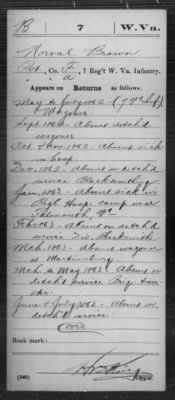 B 7 W.Va.
Norval Brown
Pvt, Co. F, 7 Reg't W. Va. Infantry.
a
Appears on Returns as follows:
May to July 1862
Wagoner.
Sept. 1862 - Absent detch'd
wagoner
Oct & Nov. 1862 - Absent sick
in hosp.
Dec. 1862 - Absent on detch'd
service Blacksmith
Jany. 1863 - Absent sick in
Regt Hosp. camp near
Falmouth, Va
Feb. 1863 - Absent on detch'd
service Div. Blacksmith
Mch. 1863 - Absent wagoner
at Martinsburg.
Mch. to May 1863 - Absent on
detch'd service Brig.
June & July 1863 - Absent on
detch'd service
(over)
Book mark:
(546)
Copyist.